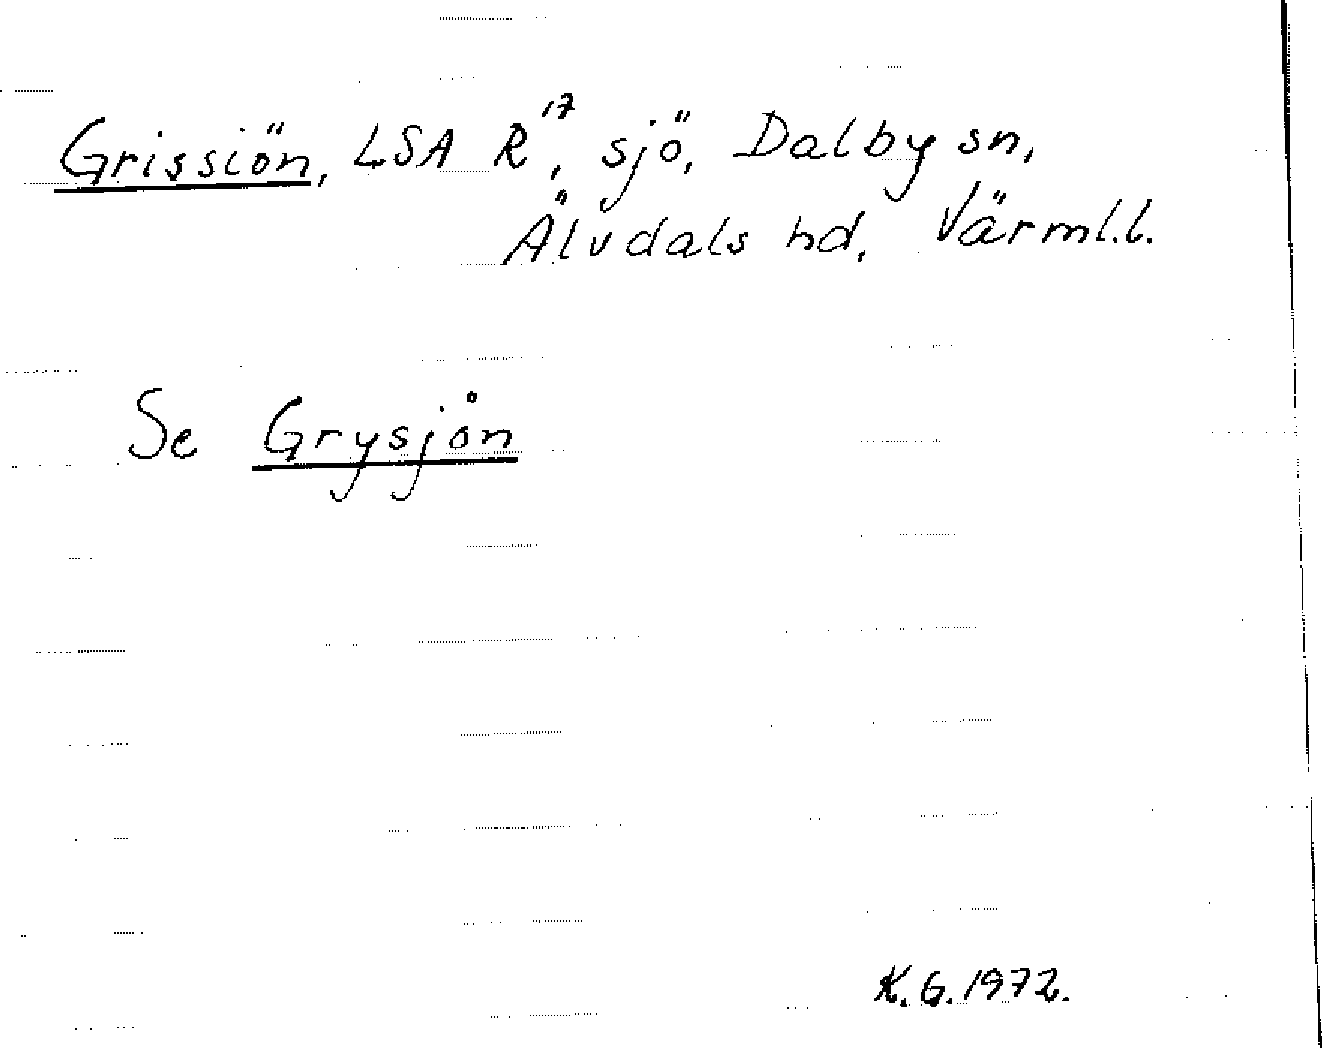 Grissiön, LSA R¹⁷, sjö, Dalby sn,
Älvdals hd, Värml.l.
Se Grysjön
K.G. 1972.